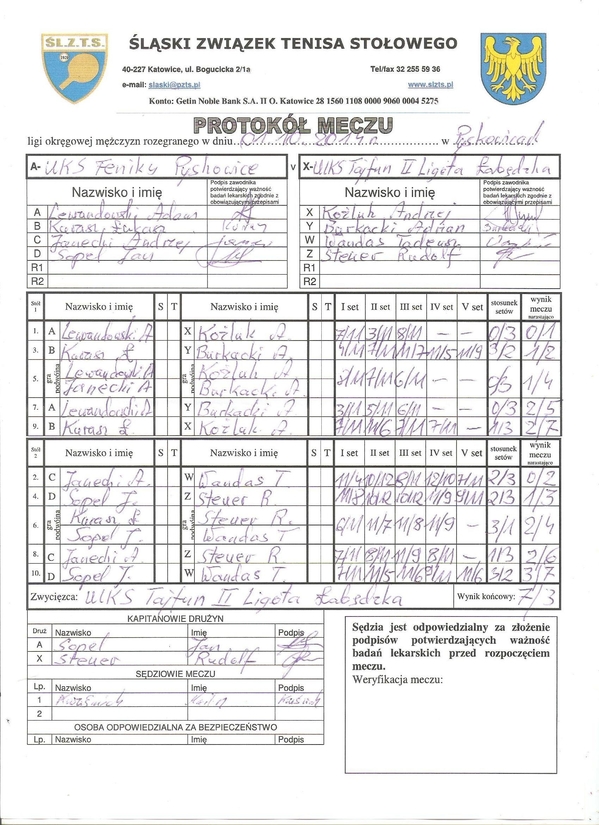 ŚL.Z.T.S.
ŚLĄSKI ZWIĄZEK TENISA STOŁOWEGO
40-227 Katowice, ul. Bogucicka 2/1a Tel/fax 32 255 59 36
e-mail: slaski@pzts.pl www.slzts.pl
Konto: Getin Noble Bank S.A. II O. Katowice 28 1560 1108 0000 9060 0004 5275
PROTOKÓŁ MECZU
ligi okręgowej mężczyzn rozegranego w dniu 01.10.2014r. w Pyskowicach
A- UKS Feniks Pyskowice v X- UKS Tajfun II Ligota Łabędzka
Nazwisko i imię Podpis zawodnika potwierdzający ważność badań lekarskich zgodnie z obowiązującymi przepisami Nazwisko i imię Podpis zawodnika potwierdzający ważność badań lekarskich zgodnie z obowiązującymi przepisami
A Lewandowski Adam X Koźluk Andrzej
B Kuraś Łukasz Y Burkacki Adrian
C Janecki Andrzej W Wandas Tadeusz
D Sopel Jan Z Steuer Rudolf
R1 R1
R2 R2
Stół 1 Nazwisko i imię S T Nazwisko i imię S T I set II set III set IV set V set stosunek setów wynik meczu narastająco
1. A Lewandowski A X Koźluk A 7/11 3/11 8/11 — — 0/3 0/1
3. B Kuraś Ł Y Burkacki A 11/7 11/5 11/9 3/2 1/2
5. gra podwójna Lewandowski A Janecki A Koźluk A Burkacki A. 7/11 6/11 — — 0/3 1/4
7. A Lewandowski A Y Burkacki A. 3/11 5/11 6/11 — — 0/3 2/5
9. B Kuraś Ł. X Koźluk A. 7/11 11/6 7/11 7/11 — 1/3 2/7
Stół 2 Nazwisko i imię S T Nazwisko i imię S T I set II set III set IV set V set stosunek setów wynik meczu narastająco
2. C Janecki A. W Wandas T. 11/4 10/12 8/11 12/10 7/11 2/3 0/2
4. D Sopel J. Z Steuer R 11/8 10/12 10/12 11/9 9/11 2/3 1/3
6. gra podwójna Kuraś Ł. Sopel J. Steuer R. Wandas T. 6/11 11/7 11/8 11/9 — 3/1 2/4
8. C Janecki A. Z Steuer R 7/11 8/11 11/9 8/11 — 1/3 2/6
10. D Sopel J. W Wandas T. 7/11 11/5 11/6 11/6 3/2 3/7
Zwycięzca: UKS Tajfun II Ligota Łabędzka Wynik końcowy: 7/3
KAPITANOWIE DRUŻYN
Druż Nazwisko Imię Podpis
A Sopel Jan
X Steuer Rudolf
SĘDZIOWIE MECZU
Lp. Nazwisko Imię Podpis
1
2
OSOBA ODPOWIEDZIALNA ZA BEZPIECZEŃSTWO
Lp. Nazwisko Imię Podpis
Sędzia jest odpowiedzialny za złożenie
podpisów potwierdzających ważność
badań lekarskich przed rozpoczęciem
meczu.
Weryfikacja meczu: